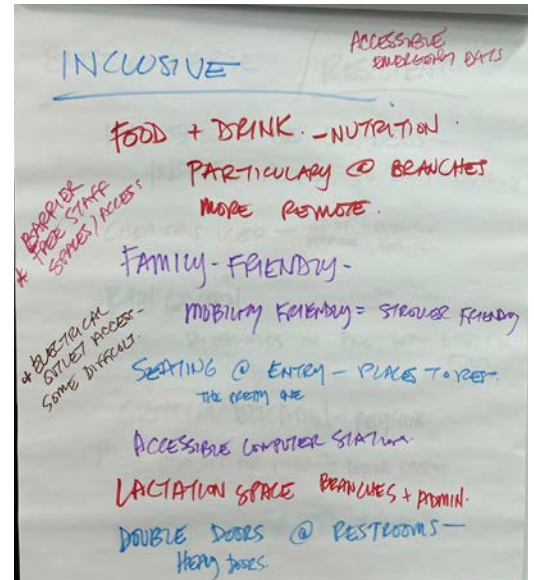 INCLUSIVE
ACCESSIBLE
EMERGENCY EXITS
FOOD + DRINK. - NUTRITION.
PARTICULARY @ BRANCHES
MORE REMOTE.
* BARRIER
FREE STAFF
SPACES/ACCESS
FAMILY-FRIENDLY-
MOBILITY FRIENDLY = STROLLER FRIENDLY
* ELECTRICAL
OUTLET ACCESS-
SOME DIFFICULT.
SEATING @ ENTRY - PLACES TO REST.
THE PRETTY ONE
ACCESSIBLE COMPUTER STATION.
LACTATION SPACE BRANCHES + ADMIN.
DOUBLE DOORS @ RESTROOMS-
HEAVY DOORS.